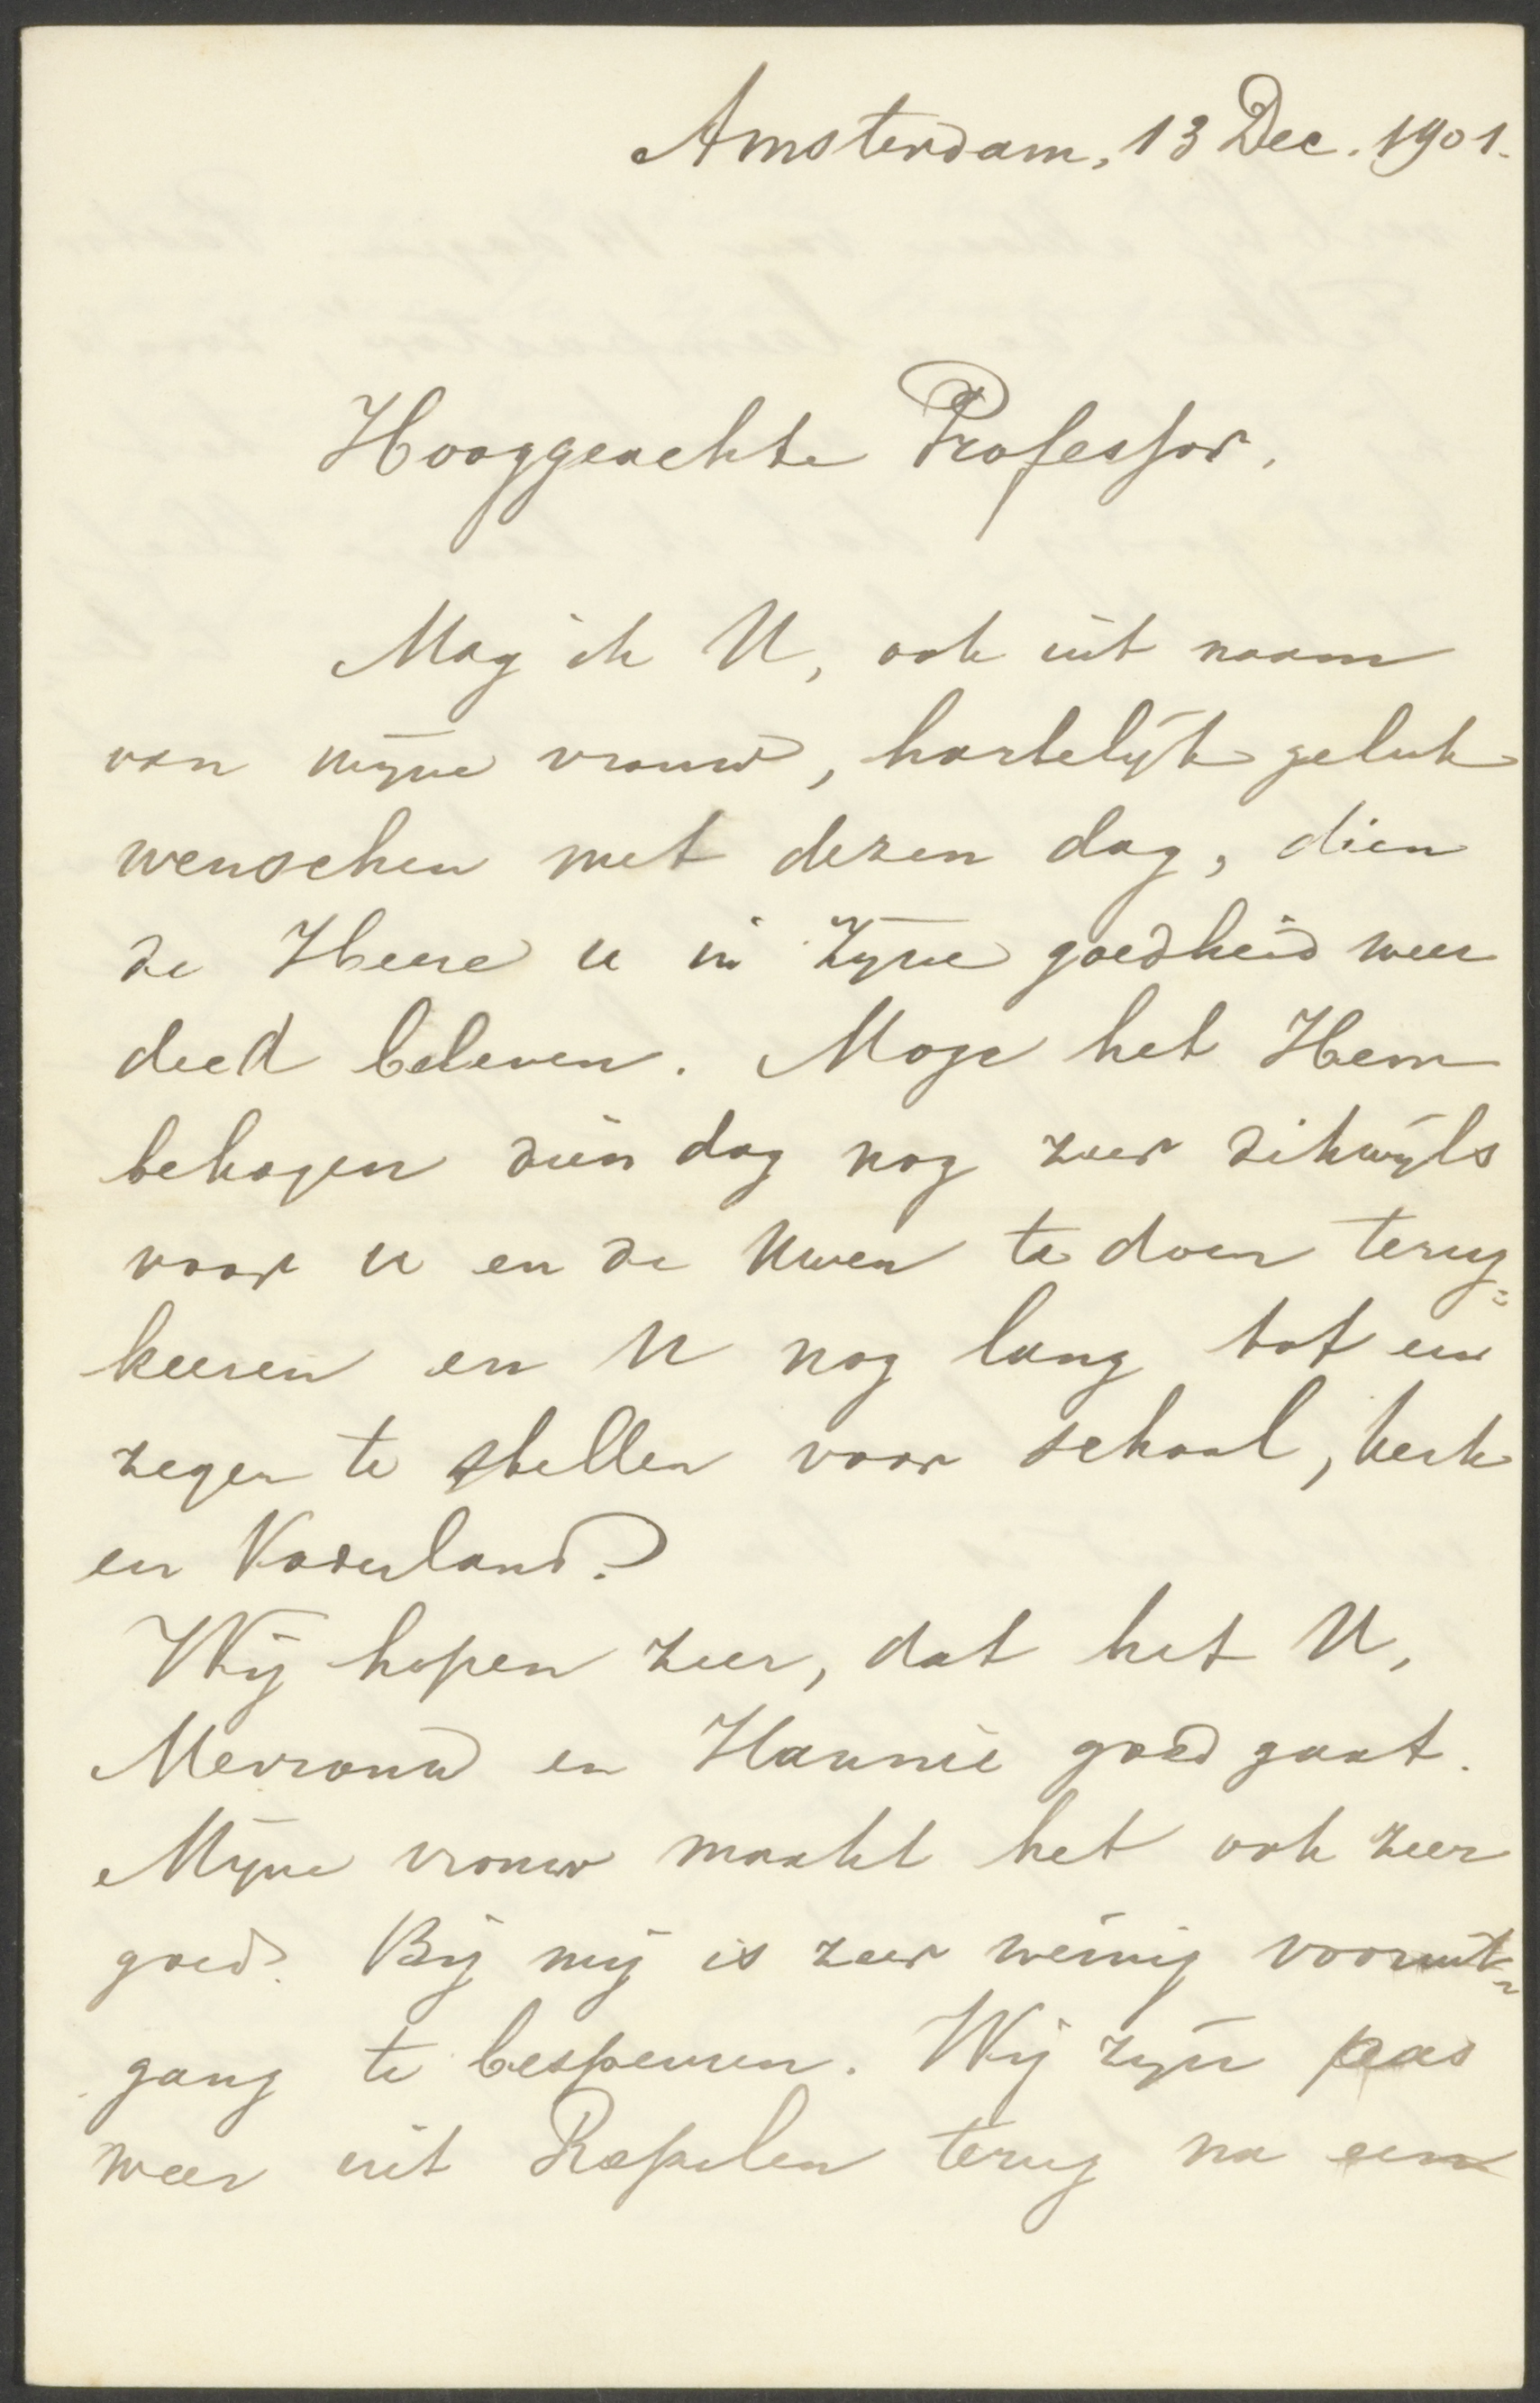 Amsterdam, 13 Dec. 1901.
Hooggeachte Professor,
Mag ik U, ook uit naam
van mijne vrouw, hartelijk geluk
wenschen met dezen dag, dien
de Heere u in Zijne goedheid weer
deed beleven. Moge het Hem
behagen dien dag nog zeer dikwijls
voor u en de Uwen te doen terug=
keeren en U nog lang tot een
zegen te stellen voor school, kerk
en Vaderland?
Wij hopen zeer, dat het U,
Mevrouw en Hannie goed gaat.
Mijne vrouw maakt het ook zeer
goed. Bij mij is zeer weinig vooruit=
gang te bespeuren. Wij zijn pas
weer uit Rospelen terug na een